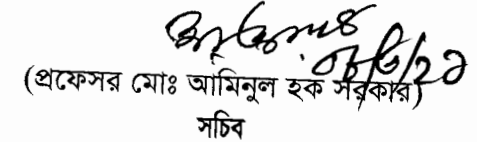 (প্রফেসর মোঃ আমিনুল হক সরকার)
সচিব